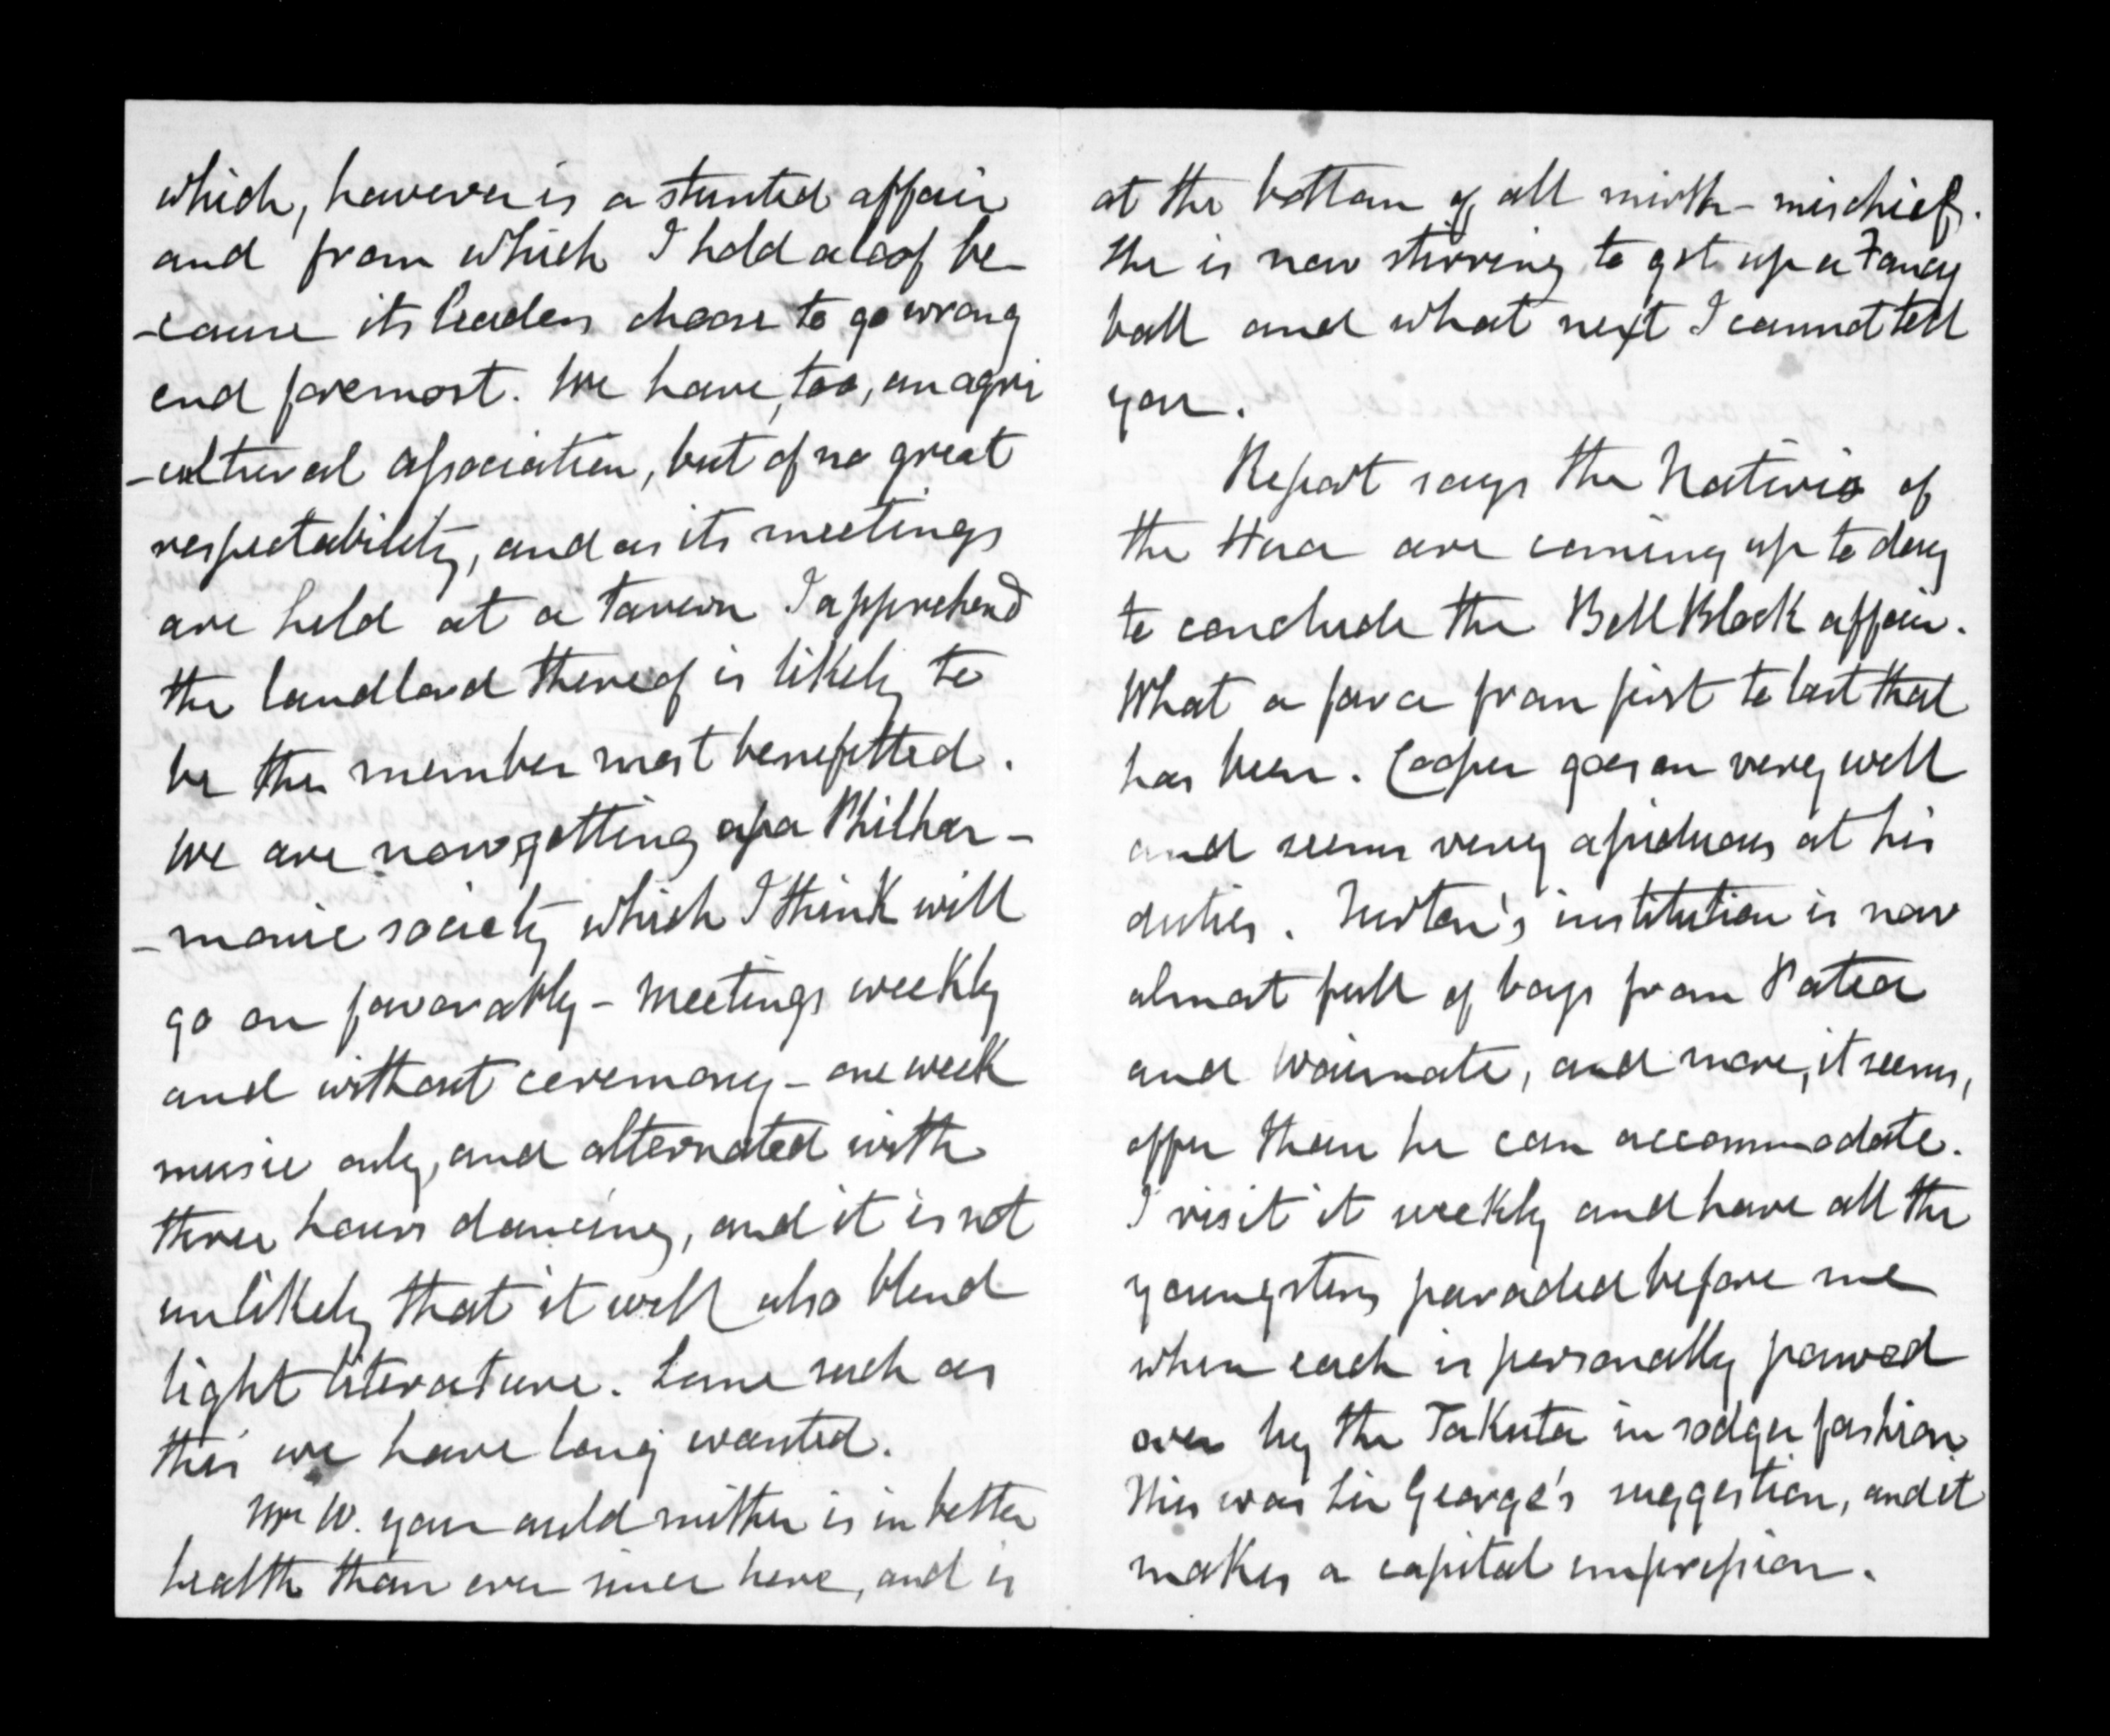 which, however is a stunted affair
and from which I hold aloof be-
-cause its leaders choose to go wrong
end foremost. We have, too, an agri
-cultural association, but of no great
respectability, and as its meetings
are held at a tavern I apprehend
the landlord thereof is likely to
be the member most benefitted.
We are now getting up a Philhar-
-monic society which I think will
go on favorably - meetings weekly
and without ceremony - one week
music only, and alternated with
three hours dancing, and it is not
unlikely that it will also blend
light literature. Some such as
this we have long wanted.
Mrs W. your auld mither is in better
health than ever since here, and is
at the bottom of all mirth-mischief.
She is now stirring to get up a Fancy
ball and what next I cannot tell
you.
Report says the Natives of
the Hua are coming up to day
to conclude the Bell Block affair.
What a farce from first to last that
has been. Cooper goes on very well
and seems very assiduous at his
duties. Turton's institution is now
almost full of boys from Patea
and Waimate, and more, it seems,
offer than he can accommodate.
I visit it weekly and have all the
youngsters paraded before me
when each is personally pawed
over by the Takuta in sodger fashion
This was Sir George's suggestion, and it
makes a capital impression.